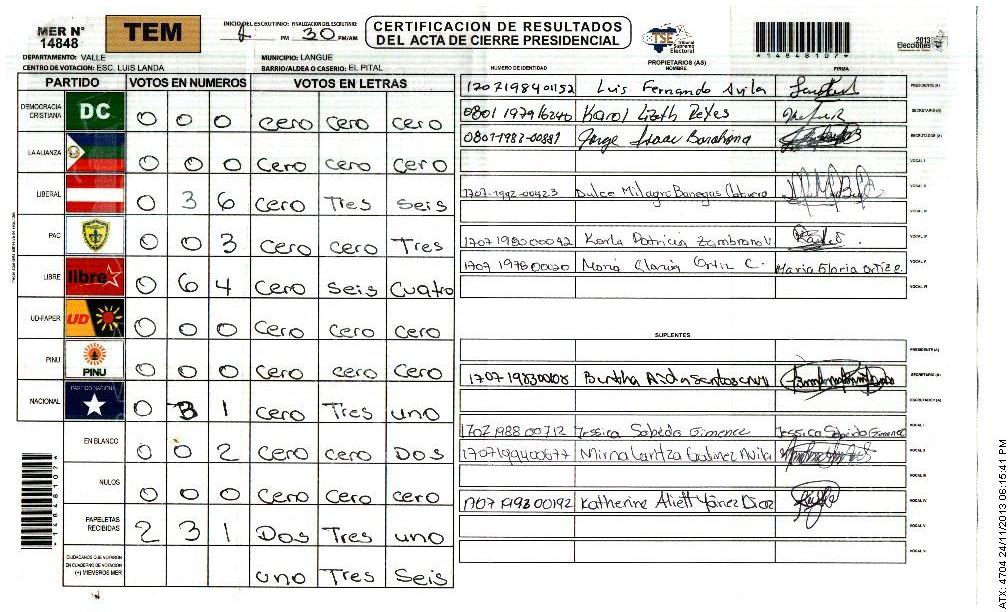 MER N° 14848
TEM
INICIO DEL ESCRUTINIO: FINALIZACION DEL ESCRUTINIO:
PM 30 PM/AM
CERTIFICACION DE RESULTADOS
DEL ACTA DE CIERRE PRESIDENCIAL
TSE Tribunal Supremo Electoral
*14848107*
2013 Elecciones
DEPARTAMENTO: VALLE MUNICIPIO: LANGUE
CENTRO DE VOTACION: ESC. LUIS LANDA BARRIO/ALDEA O CASERIO: EL PITAL
PARTIDO VOTOS EN NUMEROS VOTOS EN LETRAS
DEMOCRACIA CRISTIANA DC 0 0 0 cero cero cero
LA ALIANZA 0 0 0 cero cero cero
LIBERAL 0 3 6 cero Tres seis
PAC 0 0 3 cero cero Tres
LIBRE libre 0 6 4 cero seis cuatro
UD-FAPER UD 0 0 0 cero cero cero
PINU PINU 0 0 0 cero cero cero
NACIONAL PARTIDO NACIONAL 0 3 1 cero Tres uno
EN BLANCO 0 0 2 cero cero Dos
NULOS 0 0 0 cero cero cero
PAPELETAS RECIBIDAS 2 3 1 Dos Tres uno
CIUDADANOS QUE VOTARON EN CUADERNO DE VOTACION (+) MIEMBROS MER uno Tres seis
PROPIETARIOS (AS)
NUMERO DE IDENTIDAD NOMBRE FIRMA
1707198401152 Luis Fernando Avila PRESIDENTE (A)
0801 197916240 Karol Lizeth Reyes SECRETARIO (A)
0801-1982-00881 Jorge Isaac Barahona ESCRUTADOR (A)
VOCAL I
1707-1992-00423 Dulce Milagro Banegas VOCAL II
VOCAL III
1707 198000042 Karla Patricia Zambrano V VOCAL IV
1707 1978 00020 Maria Gloria Ortiz C. Maria Gloria Ortiz C. VOCAL V
VOCAL VI
SUPLENTES
PRESIDENTE (A)
1707 198300108 Bertha SECRETARIO (A)
ESCRUTADOR (A)
1707 1988 00712 Jessica Sabeda Gimenez Jessica VOCAL I
1707199400677 Mirna Avila VOCAL II
VOCAL III
1707 1993 00192 Katherine Yánez Diaz VOCAL IV
VOCAL V
VOCAL VI
*14848107*
ATX: 4704 24/11/2013 06:15:41 PM